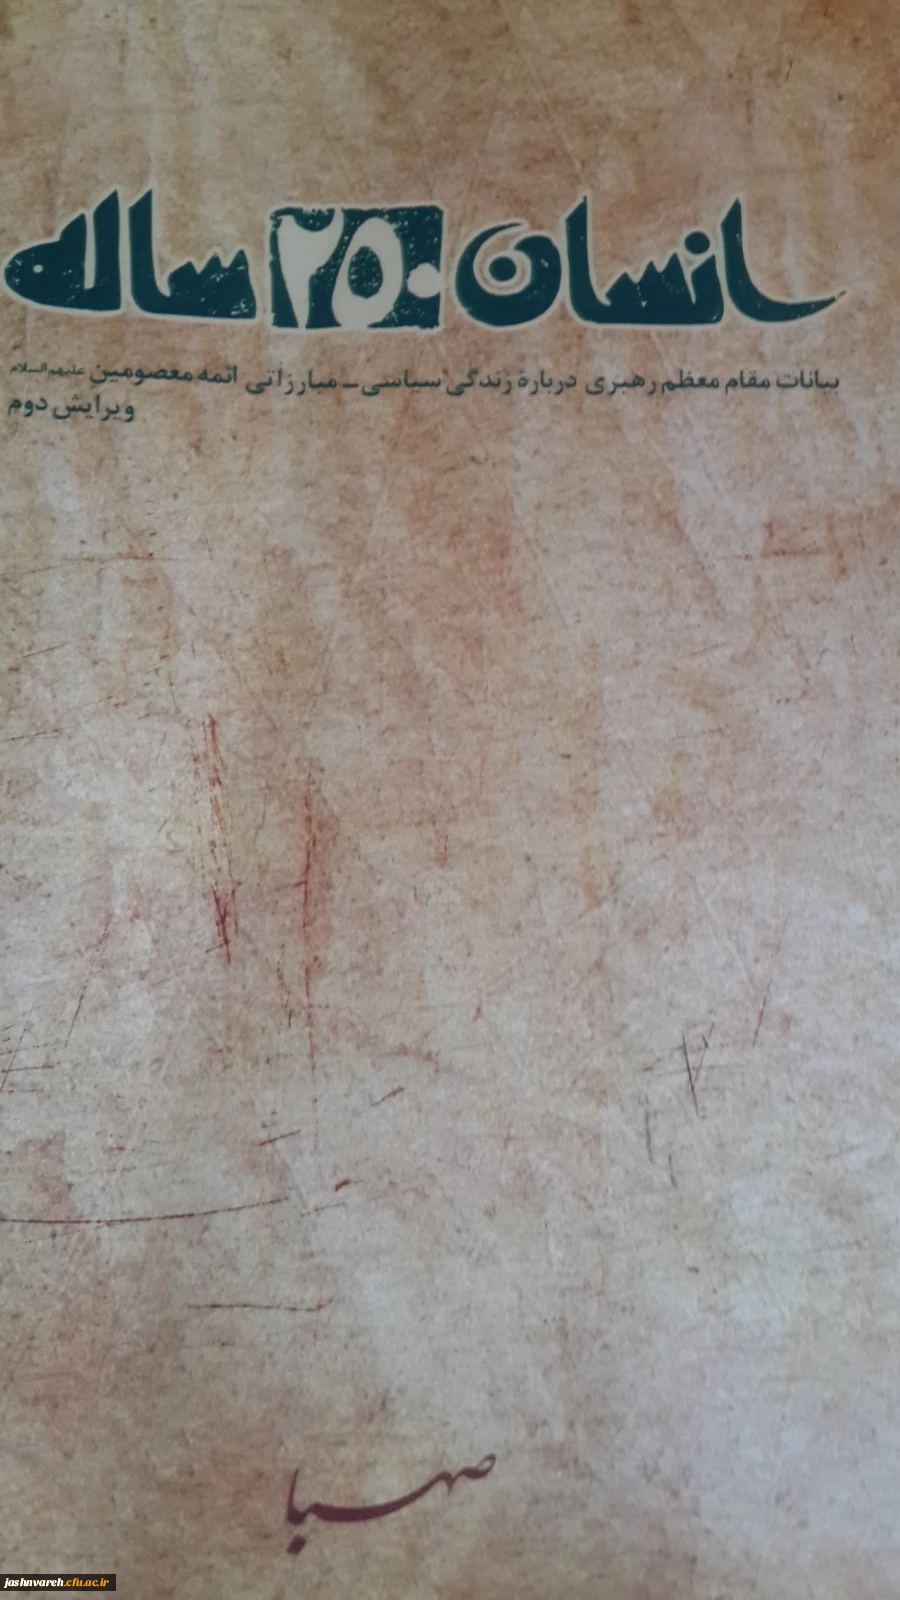 انسان ۲۵۰ ساله
بیانات مقام معظم رهبری درباره‌ٔ زندگی سیاسی ـ مبارزاتی ائمه معصومین علیهم‌السلام
ویرایش دوم
صهبا
jashnvareh.cfu.ac.ir